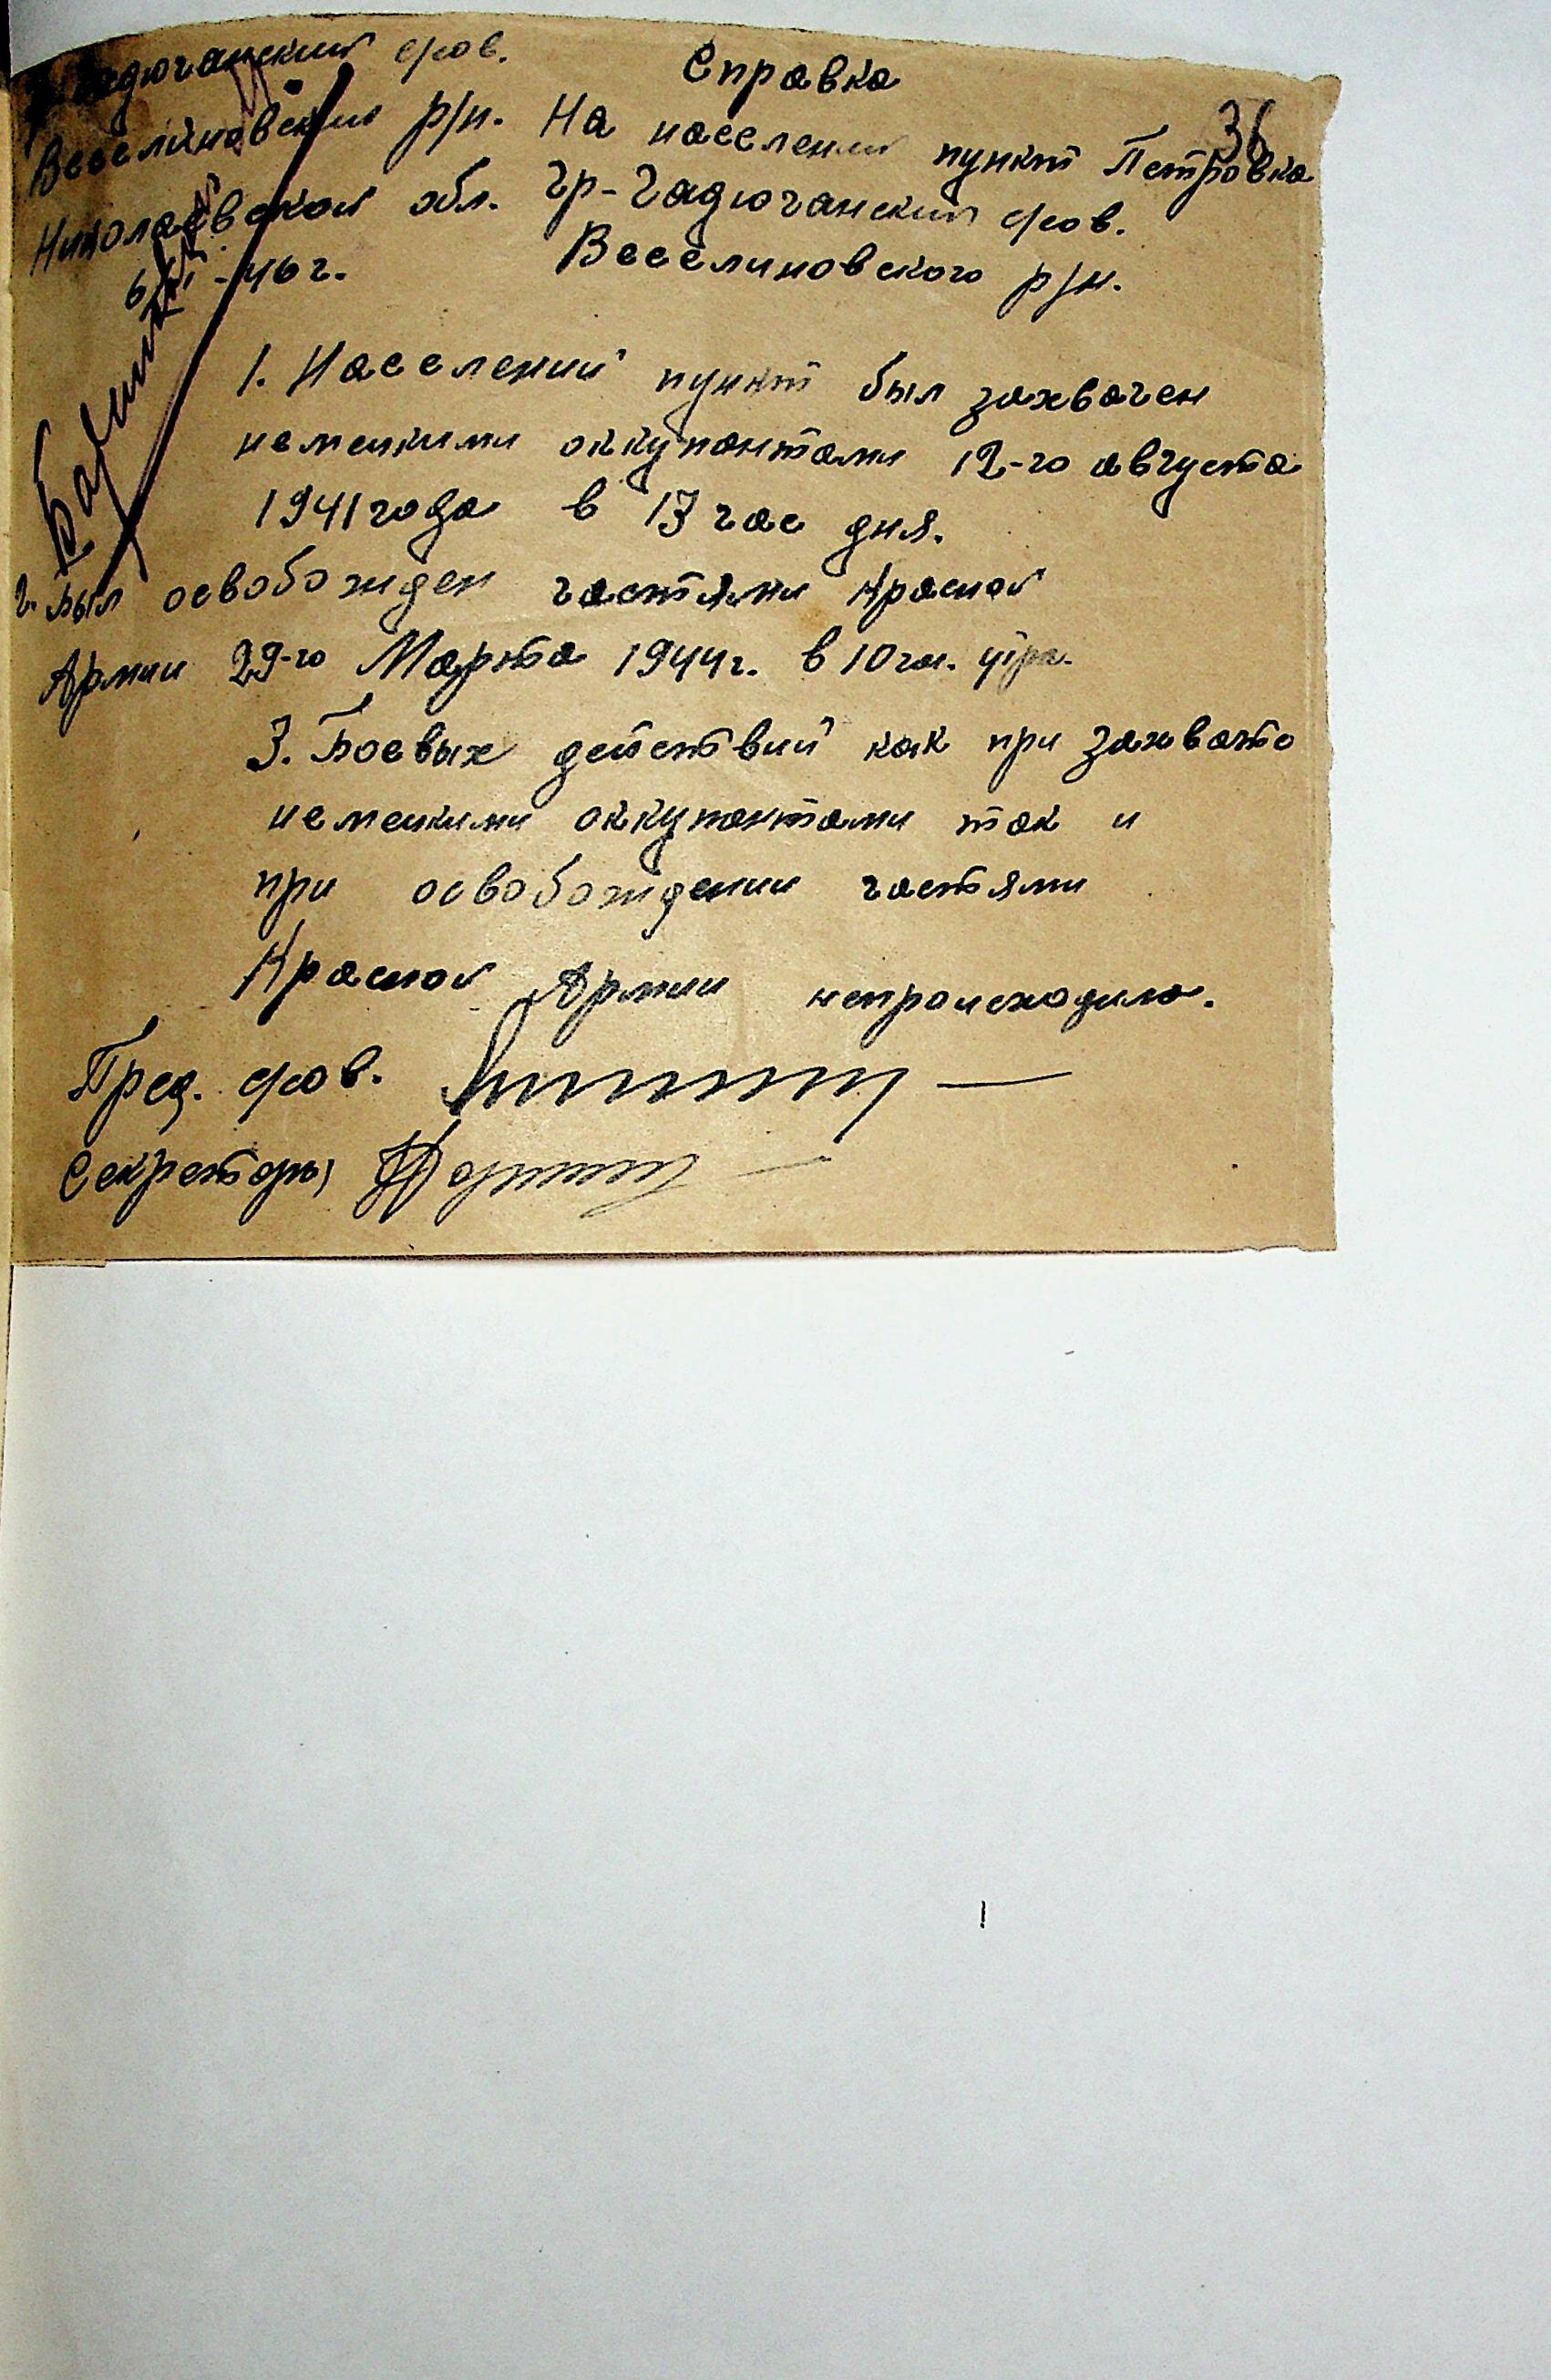 Гадючанский с/сов.
Веселиновский р/н.
Николаевской обл.
6/XI-46 г.
36
Справка
На населений пункт Петровка
Гр-Гадючанский с/сов.
Веселиновского р/н.
1. Населений пункт был захвачен
немецкими оккупантами 12-го августа
1941 года в 13 час дня.
2. Был освобожден частями Красной
Армии 29-го Марта 1944 г. в 10 ча. утра.
3. Боевых действий как при захвате
немецкими оккупантами так и
при освобождении частями
Красной Армии непроисходило.
Пред. с/сов.
Секретарь